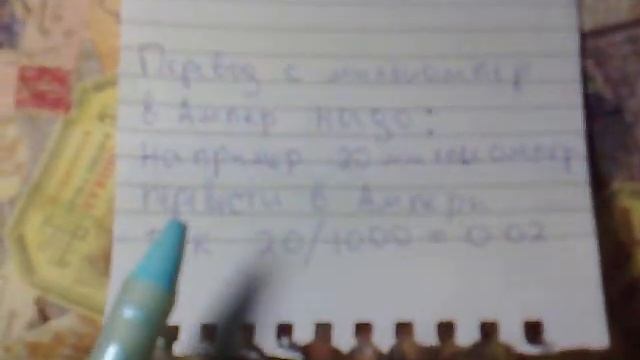 Перевод с миллиампер
в Ампер надо:
Например 20 миллиампер
перевести в Амперы
20/1000 = 0.02